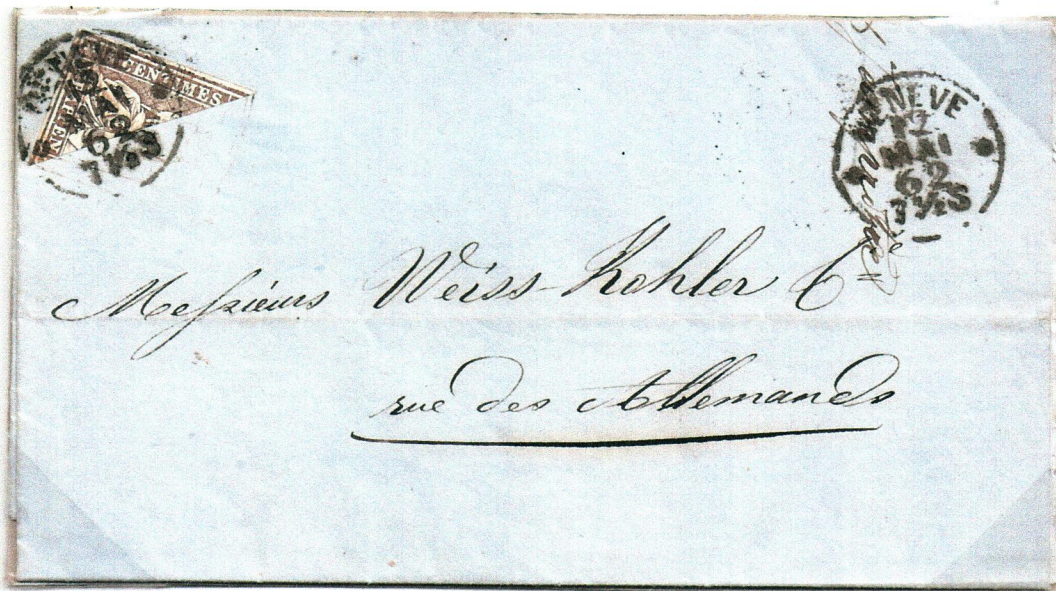 CENTIMES
RAPPEN
62
7½S
GENEVE
12
MAI
62
7½S
Messieurs Weiss-Kohler Cⁱᵉ
rue des Allemands